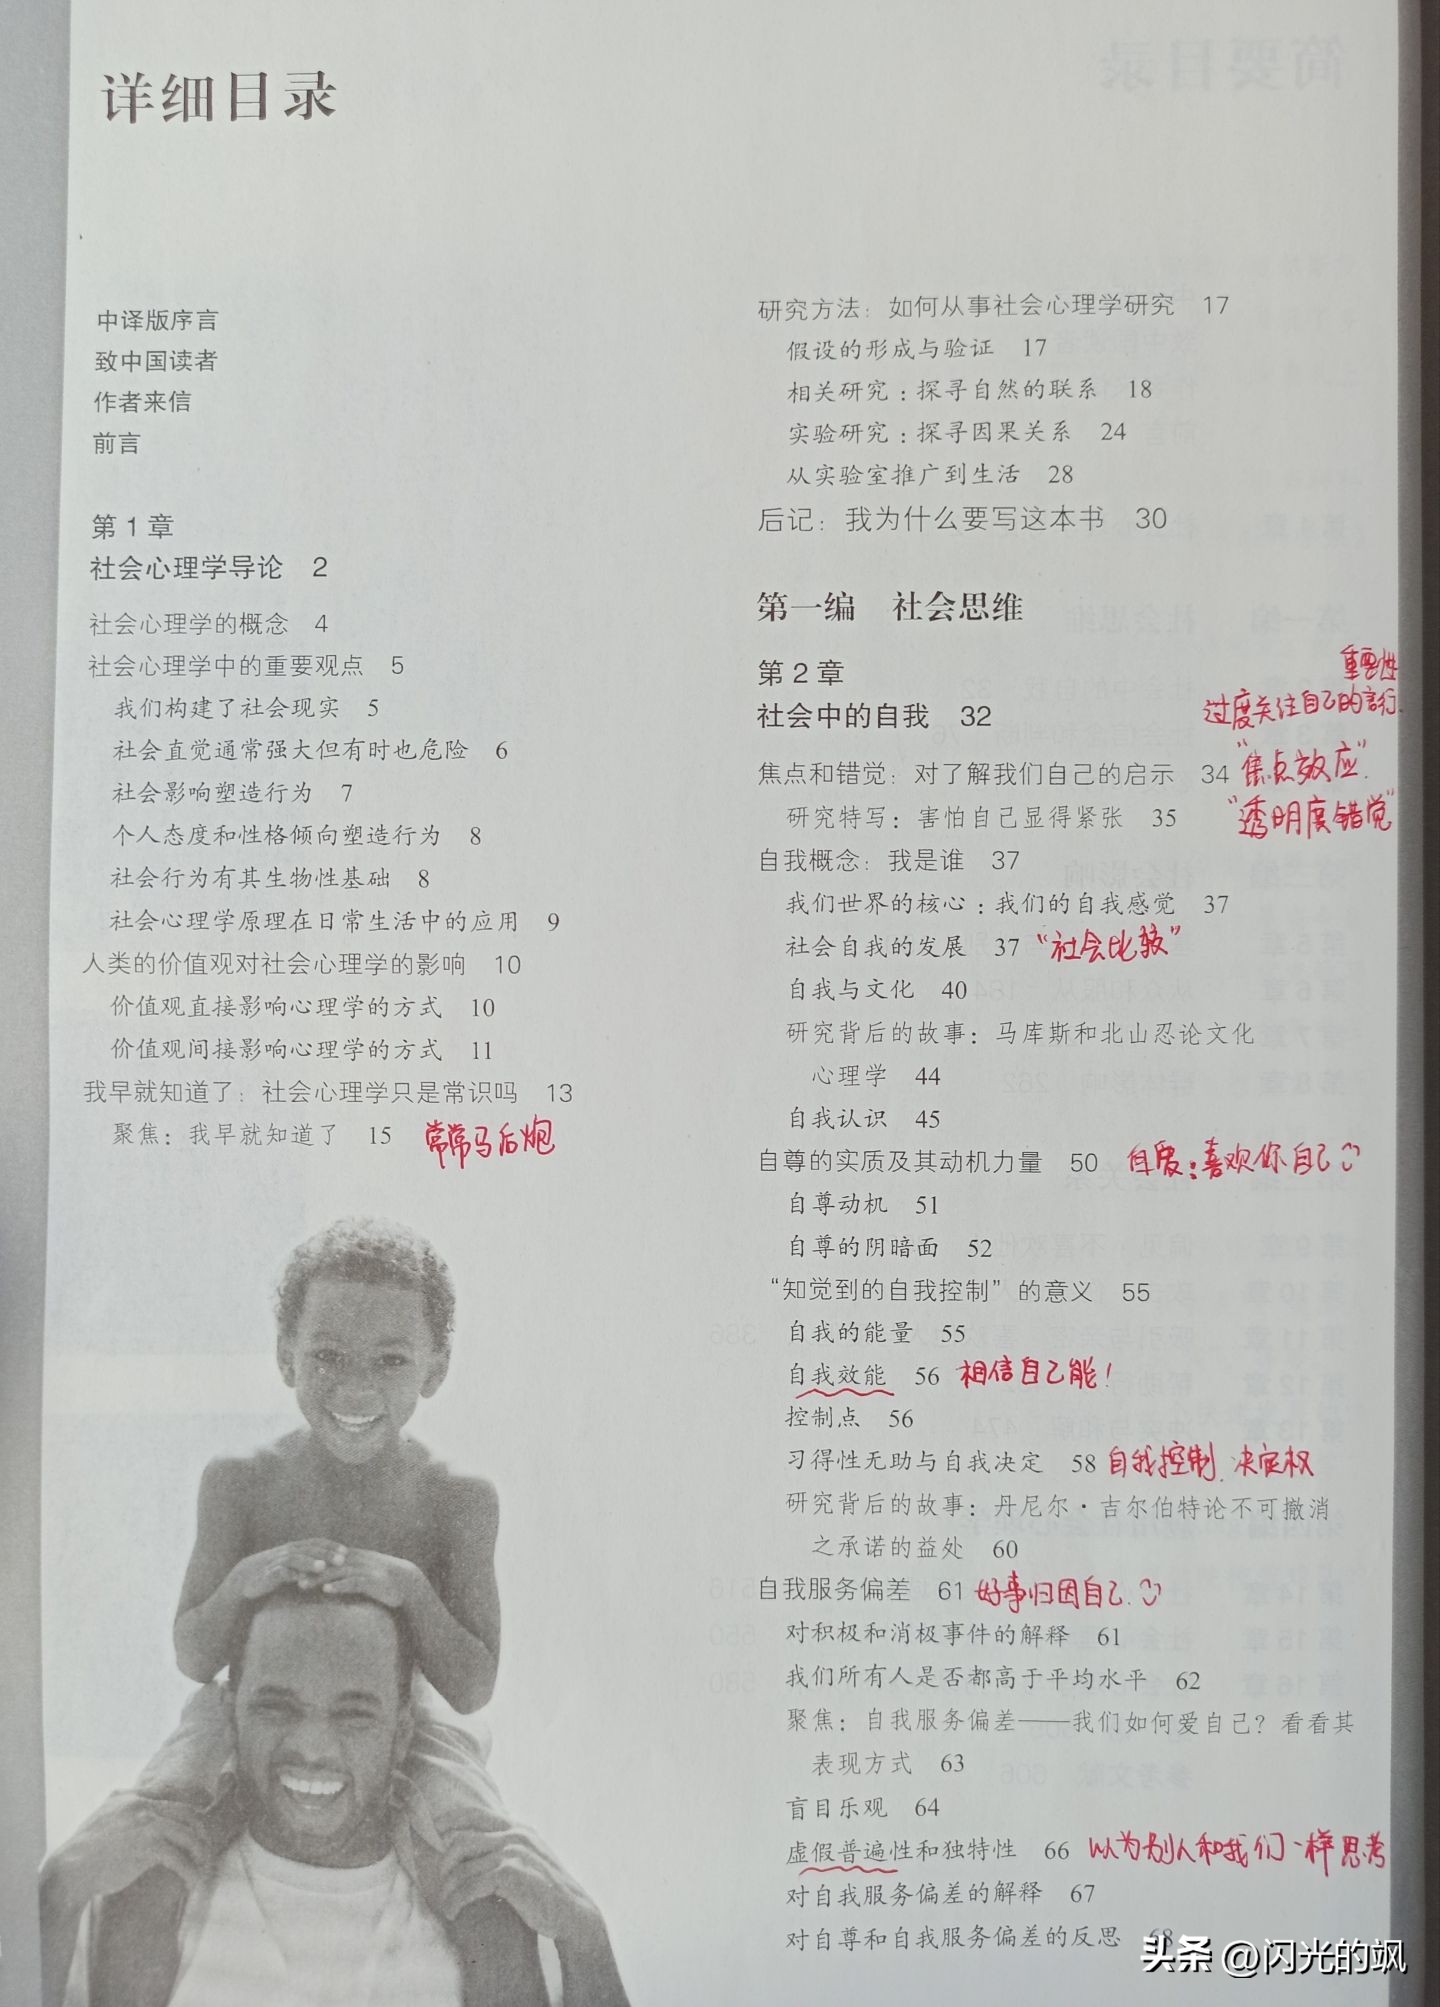 详细目录
中译版序言
致中国读者
作者来信
前言
第 1 章
社会心理学导论 2
社会心理学的概念 4
社会心理学中的重要观点 5
我们构建了社会现实 5
社会直觉通常强大但有时也危险 6
社会影响塑造行为 7
个人态度和性格倾向塑造行为 8
社会行为有其生物性基础 8
社会心理学原理在日常生活中的应用 9
人类的价值观对社会心理学的影响 10
价值观直接影响心理学的方式 10
价值观间接影响心理学的方式 11
我早就知道了：社会心理学只是常识吗 13
聚焦：我早就知道了 15 常常马后炮
研究方法：如何从事社会心理学研究 17
假设的形成与验证 17
相关研究：探寻自然的联系 18
实验研究：探寻因果关系 24
从实验室推广到生活 28
后记：我为什么要写这本书 30
第一编 社会思维
第 2 章
社会中的自我 32
重要性
过度关注自己的言行.
焦点和错觉：对了解我们自己的启示 34 “焦点效应”.
研究特写：害怕自己显得紧张 35 “透明度错觉”
自我概念：我是谁 37
我们世界的核心：我们的自我感觉 37
社会自我的发展 37 “社会比较”
自我与文化 40
研究背后的故事：马库斯和北山忍论文化
心理学 44
自我认识 45
自尊的实质及其动机力量 50 自爱：喜欢你自己
自尊动机 51
自尊的阴暗面 52
“知觉到的自我控制”的意义 55
自我的能量 55
自我效能 56 相信自己能！
控制点 56
习得性无助与自我决定 58 自我控制、决定权
研究背后的故事：丹尼尔·吉尔伯特论不可撤消
之承诺的益处 60
自我服务偏差 61 好事归因自己.
对积极和消极事件的解释 61
我们所有人是否都高于平均水平 62
聚焦：自我服务偏差——我们如何爱自己？看看其
表现方式 63
盲目乐观 64
虚假普遍性和独特性 66 以为别人和我们一样思考
对自我服务偏差的解释 67
对自尊和自我服务偏差的反思 68
头条 @闪光的飒